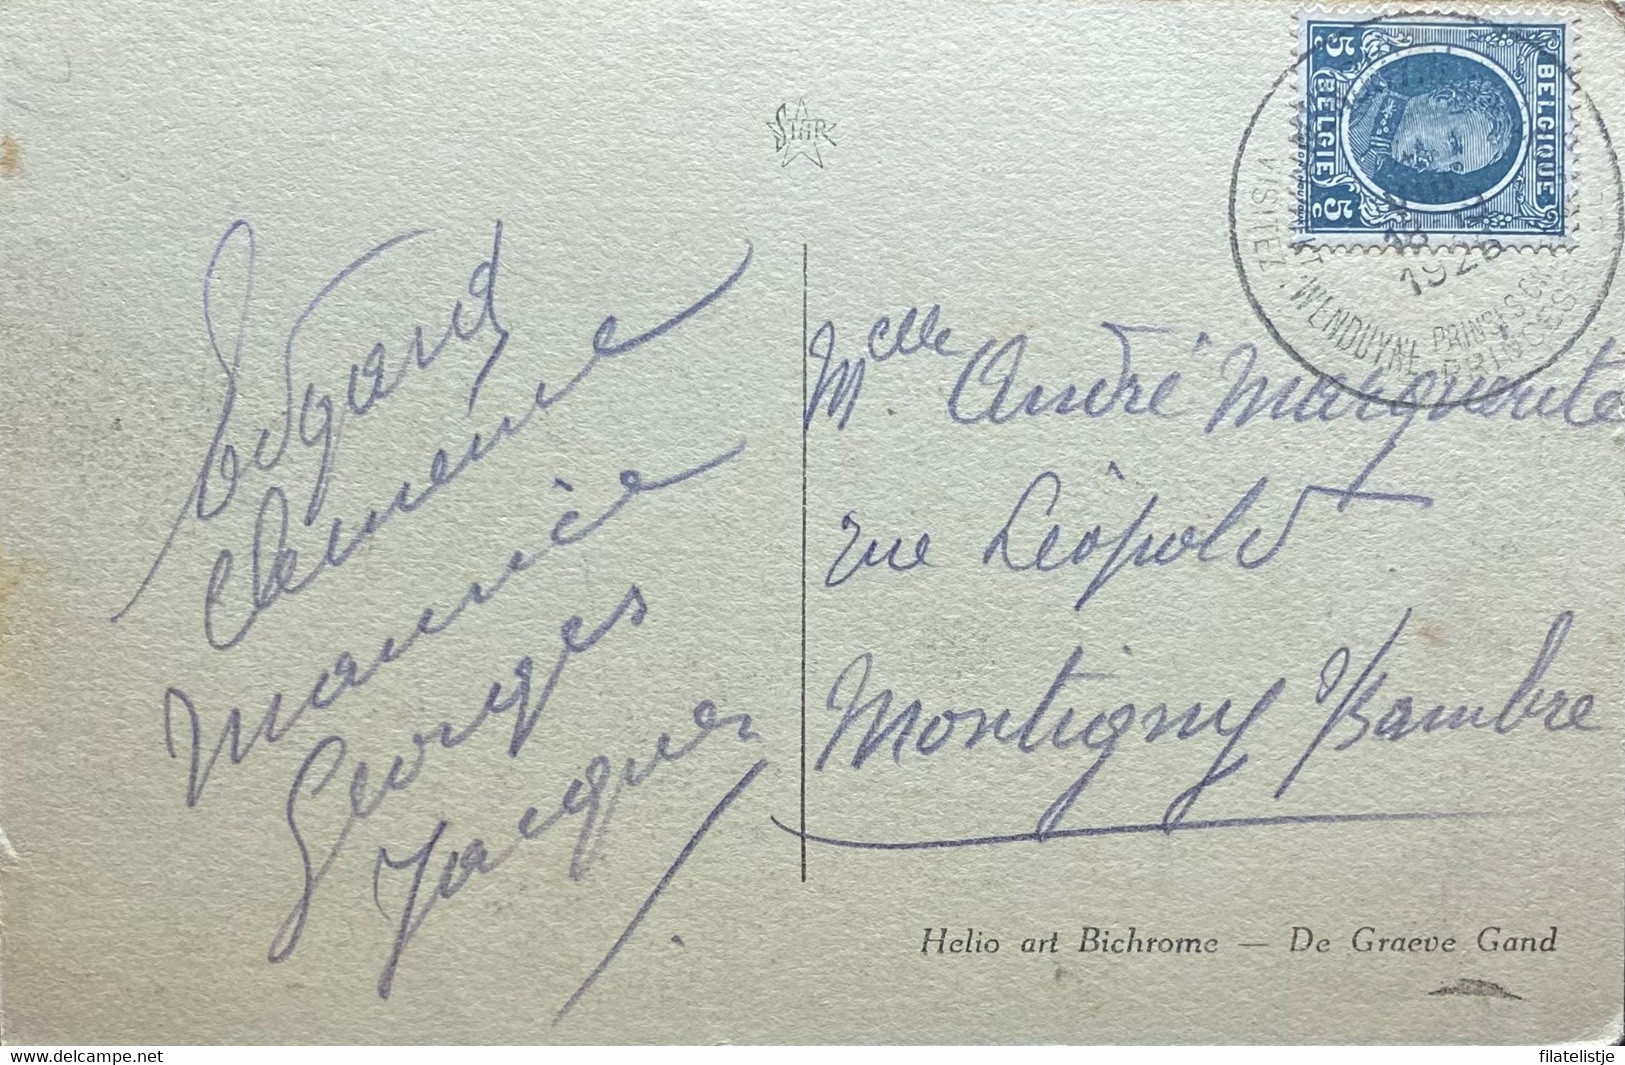 STAR
BELGIQUE
BELGIE
5c
5c
VISITEZ
WENDUYNE
PRINCESS
18
1928
Edgard
Clemence
Maurice
Georges
Jacques
Melle André Marguerite
rue Léopold
Montigny s/Sambre
Helio art Bichrome — De Graeve Gand
delcampe.net
filatelistje